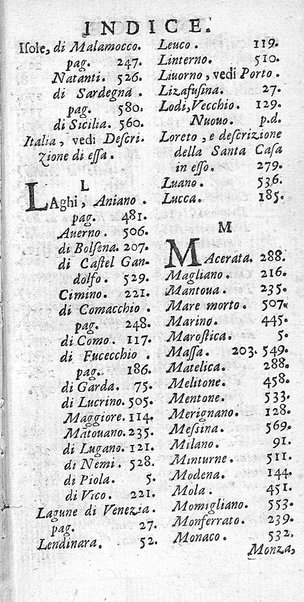 INDICE.
Isole, di Malamocco.
pag. 247.
Natanti. 526.
di Sardegna.
pag. 580.
di Sicilia. 560.
Italia, vedi Descri-
zione di essa.
L
LAghi, Aniano.
pag. 481.
Averno. 506.
di Bolsena. 207.
di Castel Gan-
dolfo. 529.
Cimino. 221.
di Comacchio.
pag. 248.
di Como. 117.
di Fucecchio.
pag. 186.
di Garda. 75.
di Lucrino. 505.
Maggiore. 114.
Mãtouano. 235.
di Lugano. 121.
di Nemi. 528.
di Piola. 5.
di Vico. 221.
Lagune di Venezia.
pag. 27.
Lendinara. 52.
Leuco. 119.
Linterno. 510.
Livorno, vedi Porto.
Lizafusina. 27.
Lodi, Vecchio. 129.
Nuouo. p.d.
Loreto, e descrizione
della Santa Casa
in esso. 279.
Luano. 536.
Lucca. 185.
M
MAcerata. 288.
Magliano. 216.
Mantoua. 235.
Mare morto. 507.
Marino. 445.
Marostica. 5.
Massa. 203. 549.
Matelica. 288.
Melitone. 458.
Mentone. 533.
Merignano. 128.
Messina. 569.
Milano. 91.
Minturne. 511.
Modena. 144.
Mola. 451.
Momigliano. 553.
Monferrato. 239.
Monaco. 532.
Monza,